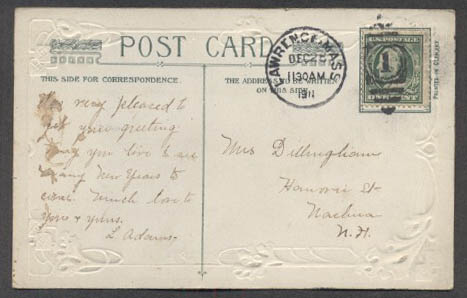 POST CARD
THIS SIDE FOR CORRESPONDENCE.
THE ADDRESS TO BE WRITTEN
ON THIS SIDE
LAWRENCE, MASS
DEC 28
11 30 AM
1911
U.S. POSTAGE
1
ONE CENT
PRINTED IN GERMANY
very pleased to
get your greeting
may you live to see
many New Years to
come. Much love to
you & yours.
L. Adams.
Mrs Dillingham
Hanover St
Nashua
N.H.